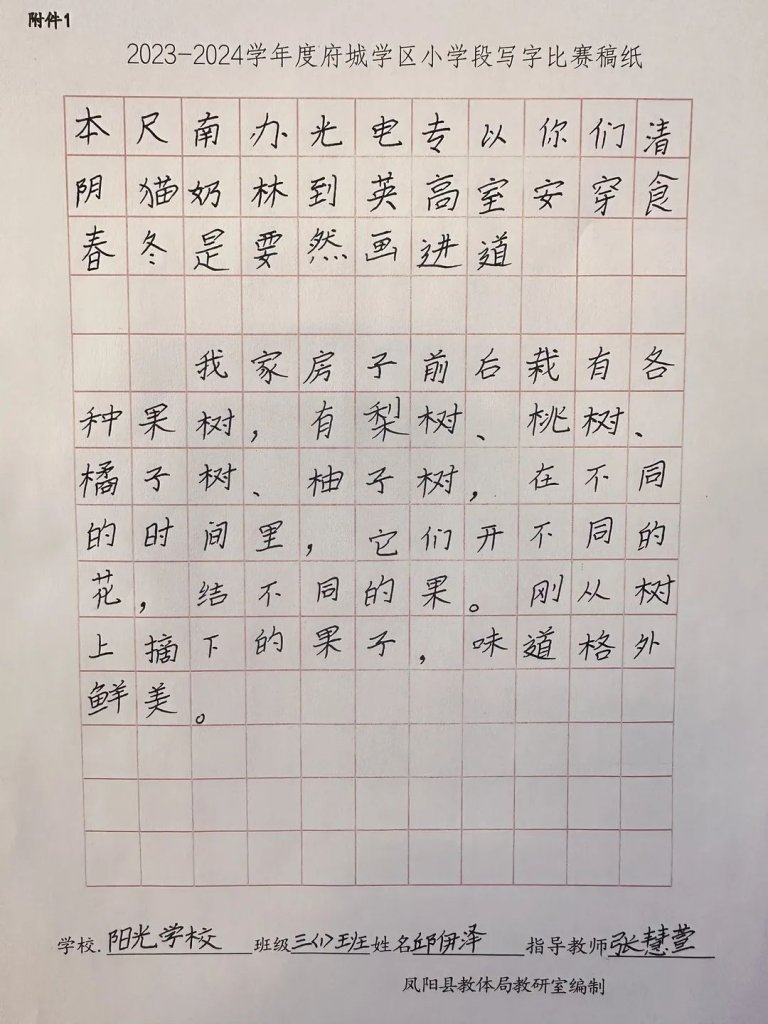 附件1
2023-2024学年度府城学区小学段写字比赛稿纸
本尺南办光电专以你们清
阴猫奶林到英高室安穿食
春冬是要然画进道
我家房子前后栽有各
种果树，有梨树、桃树、
橘子树、柚子树，在不同
的时间里，它们开不同的
花，结不同的果。刚从树
上摘下的果子，味道格外
鲜美。
学校.阳光学校 班级三(1)班姓名邱伊泽 指导教师张慧萱
凤阳县教体局教研室编制